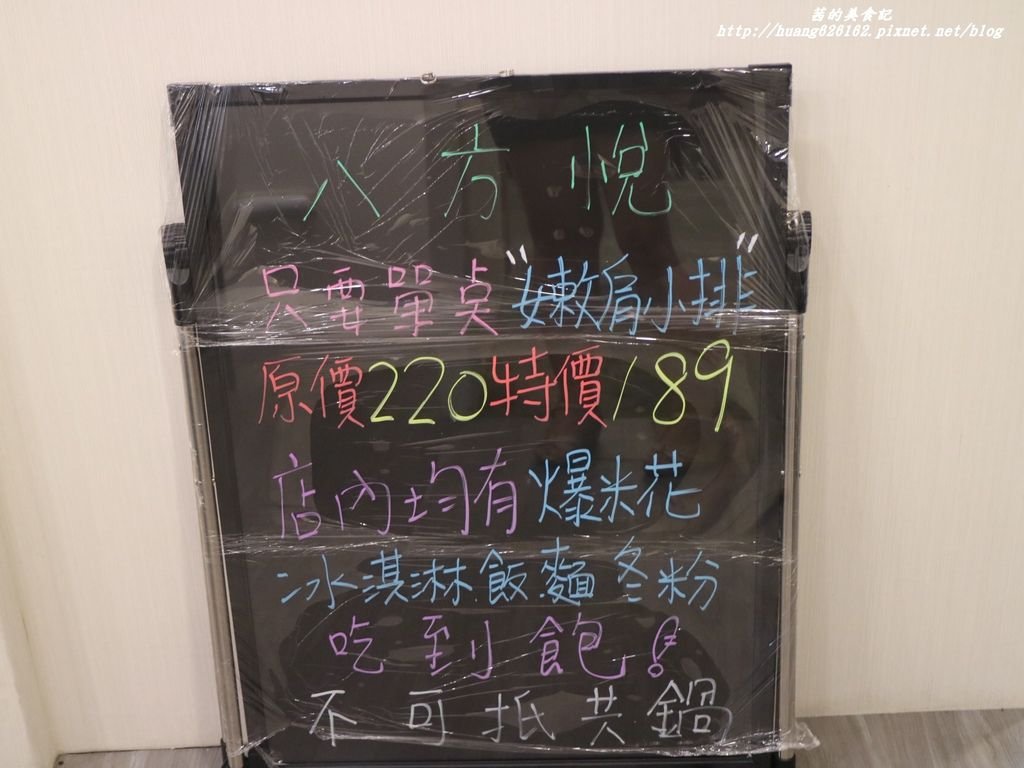 茜的美食記
http://huang826162.pixnet.net/blog
八方悅
只要單桌"嫩肩小排"
原價220特價189
店內均有爆米花
冰淇淋飯麵冬粉
吃到飽!
不可抵共鍋